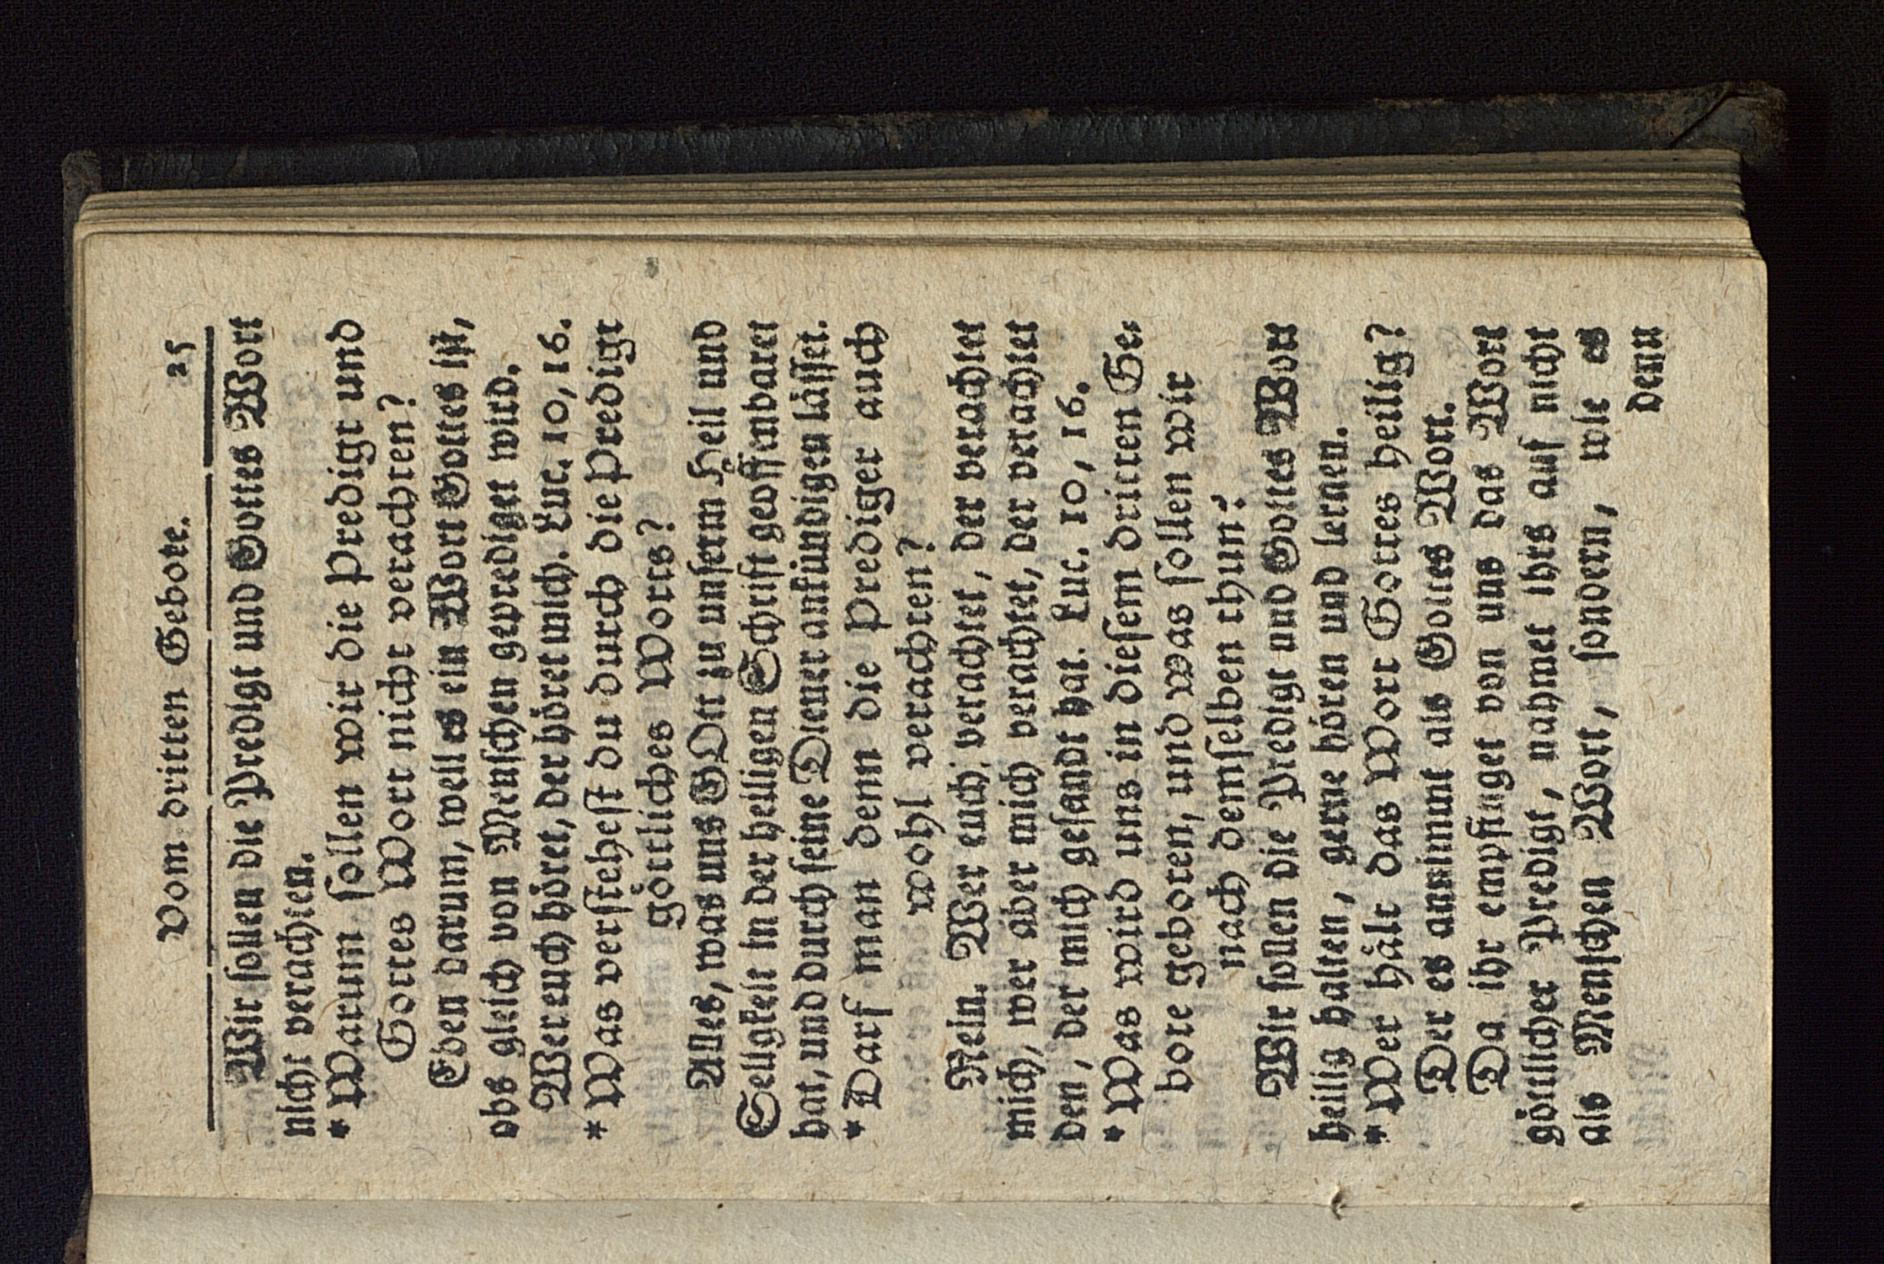 Vom dritten Gebote. 25
Wir sollen die Predigt und Gottes Wort
nicht verachten.
* Warum sollen wir die Predigt und
Gottes Wort nicht verachten?
Eben darum, weil es ein Wort Gottes ist,
obs gleich von Menschen geprediget wird.
Wer euch höret, der höret mich. Luc. 10, 16.
* Was verstehest du durch die Predigt
göttliches Worts?
Alles, was uns GOtt zu unserm Heil und
Seligkeit in der heiligen Schrift geoffenbaret
hat, und durch seine Diener ankündigen lässet.
* Darf man denn die Prediger auch
wohl verachten?
Nein. Wer euch verachtet, der verachtet
mich, wer aber mich verachtet, der verachtet
den, der mich gesandt hat. Luc. 10, 16.
* Was wird uns in diesem dritten Ge-
bote geboten, und was sollen wir
nach demselben thun?
Wir sollen die Predigt und Gottes Wort
heilig halten, gerne hören und lernen.
* Wer hält das Wort Gottes heilig?
Der es annimmt als Gottes Wort.
Da ihr empfinget von uns das Wort
göttlicher Predigt, nahmet ihrs auf nicht
als Menschen Wort, sondern, wie es
denn